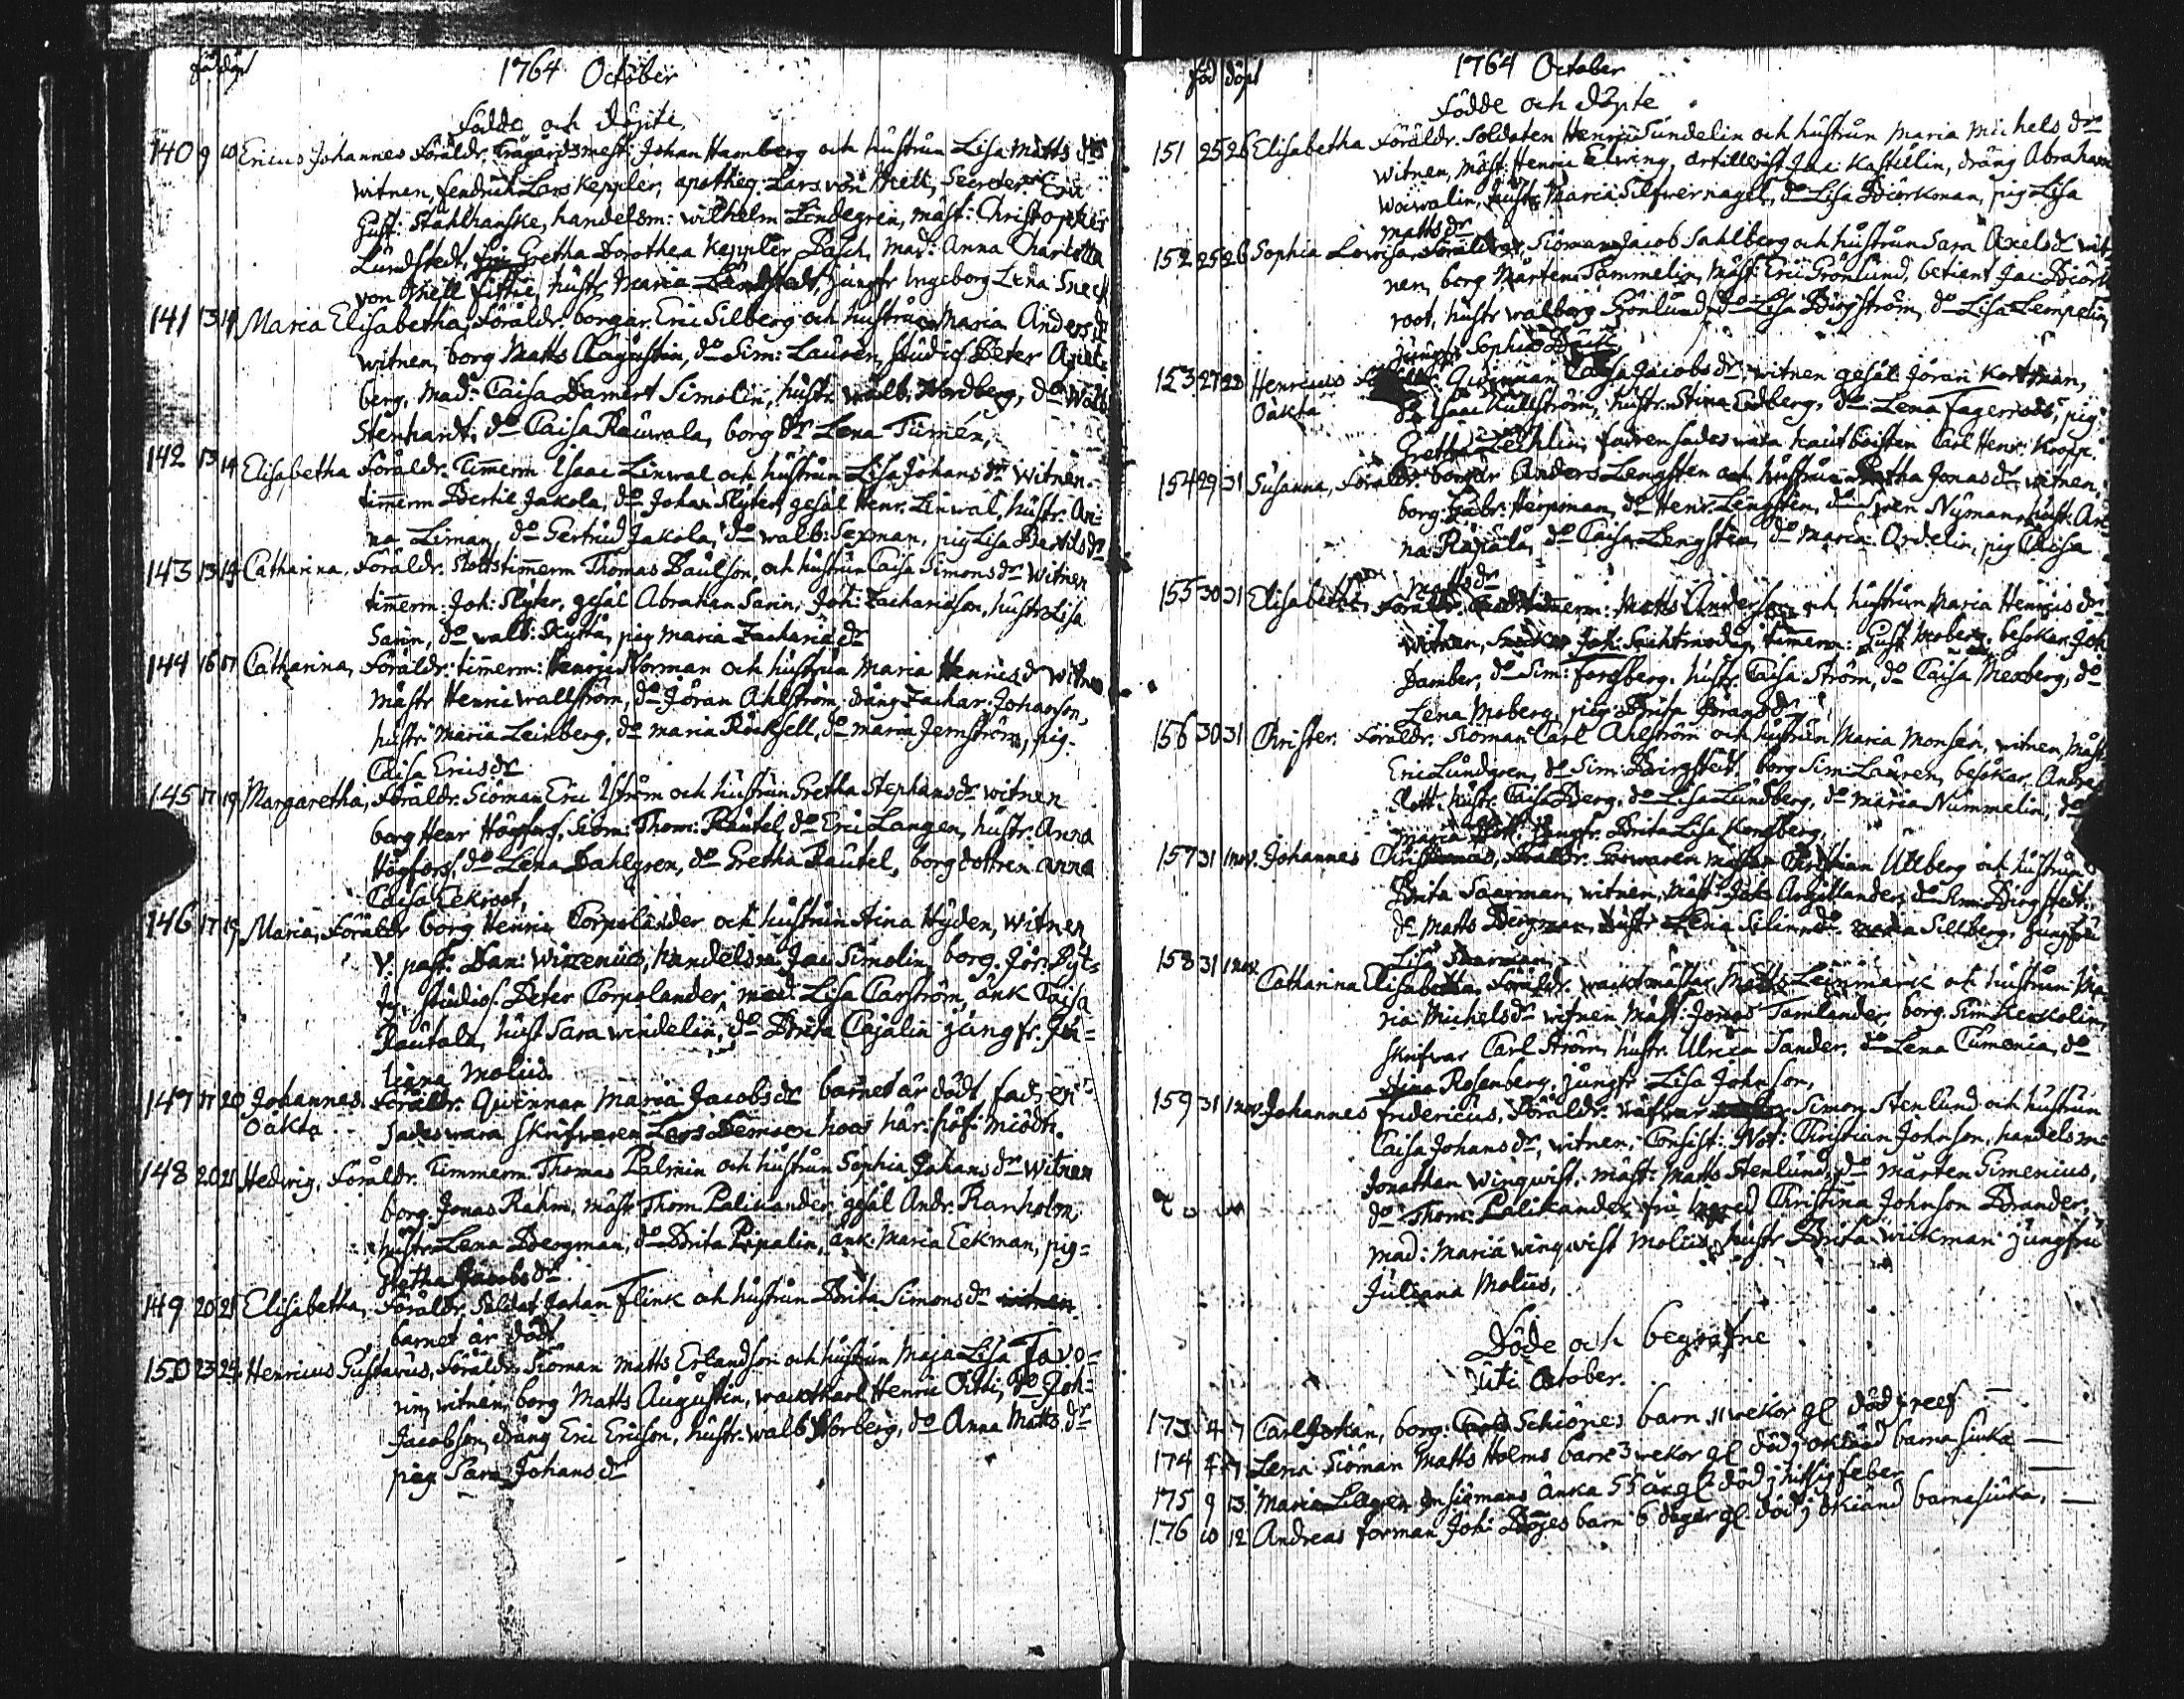 född döpt
1764 October
Födde och döpte
140 9 10 Ericus Johannes Föräldr. Trägårdsmest. Johan Hamberg och hustrun Lisa Matts dr
witnen, fendrich Lars Keppler, apotheq. Lars von Mell, Secreter Eric
Gust: Stahlhanske, handelsm: Wilhelm Lindegren, mäst: Christopher
Lundstedt, fru Gretha Dorothea Keppler Pasch, mad: Anna Charlotta
von Mell, hustr Maria Lundstedt, jungfr Ingeborg Lena
141 13 14 Maria Elisabetha, Föräldr. borgar Eric Silberg och hustrun Maria Anders dr
witnen, borg Matts Augustin, do Sim: Lauren, studios. Peter Axel-
berg, mad: Caisa Damert Simolin, hustr. walb: Nordberg, do walb
Stenhardt, do Caisa Rauwala, borg dr Lena Tumén,
142 13 14 Elisabetha Föräldr. Timerm Isaac Linwal och hustrun Lisa Johans dr witnen
timerm Bertil Jakola, do Johan Slyter, gesäl Henr. Linwal, hustr. An-
na Liman, do Gertrud Jakola, do walb: Sexman, pig Lisa Bertils dr
143 13 14 Catharina, Föräldr. Slottstimerm Thomas Paulson, och hustrun Caisa Simons dr witnen
timerm: Joh: Slyter, gesäl Abraham Sarin, Joh: Zachariason, hustr Lisa
Sarin, do walb: Skyttä, pig Maria Zacharias dr
144 16 17 Catharina, Föräldr: timerm: Henric Norman och hustrun Maria Henrics dr witnen
mästr Henric wallström, do Jöran Ahlström, dräng Zachar: Johanson,
hustr. Maria Leinberg, do Maria Röcksell, do maria Jernström, pig-
Caisa Erics dr
145 17 19 Margaretha, Föräldr. Siöman Eric Iström och hustrun Gretha Stephans dr witnen
borg Henr Högfors, Siöm: Thom: Rautel, do Eric Langen, hustr. Anna
Högfors, do Lena Dahlgren, do Gretha Rautel, borg dottren Anna
Caisa Eekroot,
146 17 19 Maria, Föräldr borg Henric Corpolander och hustrun Stina Hyden, witnen
v. past: Dan: Wirzenius, handelsm. Jac Simolin, borg. Jör. Pyt-
ty, studios. Peter Corpolander, mad. Lisa Carström, änk Caisa
Rautala, hust Sara windelin, do Brita Cajalin jungfr. Ju-
liana Molius.
147 17 20 Johannes. Föräldr. Qwinnan Maria Jacobs dr barnet är dödt, fadren
Oäkta Sades wara skrifwaren Lars hoos här: höf: Miödh.
148 20 21 Hedwig, Föräldr. Timmerm. Thomas Palmin och hustrun Sophia Johans dr witnen
borg. Jonas Rahm, mäst. Thom. Palikander, gesäl Andr. Ranholm,
hustr Lena Bergman, do Brita Pipalin, änk: Maria Eekman, pig-
Gretha Jacobs dr
149 20 21 Elisabetha, Föräldr. Soldat Johan Flink och hustrun Brita Simons dr witnen
barnet är dödt
150 23 24 Henricus Gustavus, Föräldr. Siöman Matts Erlandson och hustrun Maja Lisa Favo-
rin, witnen, borg Matts Augustin, wacktkarl Henric Oitti, do Joh:
Jacobson, dräng Eric Ericson, hustr. walb Norberg, do Anna Matts dr
pig Sara Johans dr
född döpt
1764 October
Födde och döpte
151 25 26 Elisabetha Föräldr. Soldaten Henric Sundelin och hustrun Maria Michels dr
witnen, mäst: Henric Elwing, artillerist Jac: Kastulin, dräng Abraham
Woiwalin, hustr Maria Silfwernagel, do Lisa Biörkman, pig Lisa
Matts dr
152 25 26 Sophia Lovisa Föräldrar, Siöman Jacob Sahlberg och hustrun Sara Axels dr wit-
nen, borg Mårten Tammelin, mäst: Eric Grönlund, betient Jac: Biörk
root, hustr walborg Grönlund, do Lisa Bergström, do Lisa Lempelin,
jungfr Sophia
153 27 28 Henricus Föräldr. Qwinnan Caisa Jacobs dr, witnen gesäl Jöran Kortman,
Oäkta do Isaac Kullström, hustr. Stina Endberg, do Lena Fagerroos, pig
Gretha Lechlin, fadren sades wara hautboisten Carl Henr. Kropp.
154 29 31 Susanna, Föräldr. borgar Anders Lengsten och hustrun Gretha Jonas dr witnen,
borg. Gabr: Herpman, do Henr. Lengsten, do Sven Nyman, hustr. An
na Rapala, do Caisa Lengsten, do Maria Ordelin, pig Caisa
Matts dr
155 30 31 Elisabetha, Föräldr. timerm: Matts Anderson och hustrun Maria Henrics dr
witnen, timerm: Gust Moberg, besökar. Joh
Damber, do Sim: Forssberg, hustr. Caisa Ström, do Caisa Mexberg, do
Lena Moberg, pig Brita Görans dr
156 30 31 Christer. Föräldr. Siöman Carl Ahlström och hustrun Maria Monsen, witnen, mäst
Eric Lundgren, do Sim: Bergstedt, borg Sim: Lauren, besökar. Andre
Rott, hustr. Caisa Berg, do Lisa Lundberg, do Maria Nummelin, do
Maria Rott, jungfr. Brita Lisa Kongberg,
157 31 1 nov. Johannes Christianus, Föräldr. Garwaren mäster Christian Ullberg och hustrun
Brita Saxman, witnen, mäst Jac Argillander, do Sim: Bergstedt,
do Matts Bergman, hustr Lena Silin, do maria Sillberg, jungfru
Lisa Saxman,
158 31 1 nov. Catharina Elisabetha, Föräldr. wacktmästar Matts Leinmark och hustrun Ma
ria Michels dr witnen mäst: Jonas Tamlander, borg. Sim Herkolin,
skrifwar Carl Ström, hustr. Ulrica Tander, do Lena Tumenia, do
Stina Rosenberg, jungfr Lisa Johnson,
159 31 1 nov. Johannes Fridericus, Föräldr. wäfwar Simon Stenlund och hustrun
Caisa Johans dr, witnen, Consist: Not: Christian Johnson, handelsm:
Jonathan Winqwist, mäst: Matts Stenlund, do Mårten Simenius,
do Thom: Palikander, fru Christina Johnson Brander,
mad: Maria winqwist Molius, hustr Brita Wickman jungfru
Juliana Molius,
Döde och begrafne
uti October.
173 4 7 Carl Johan, borg: Schiönes barn 11 wekor gl död j reef —
174 4 7 Lena Siöman Matts Holms barn 3 wekor gl död j okiänd barna siuka —
175 9 13 Maria Lillgren en siömans änka 55 år gl död j hitsig feber —
176 10 12 Andreas forman Joh: Böyes barn 6 dagar gl. död j okiänd barnasiuka, —